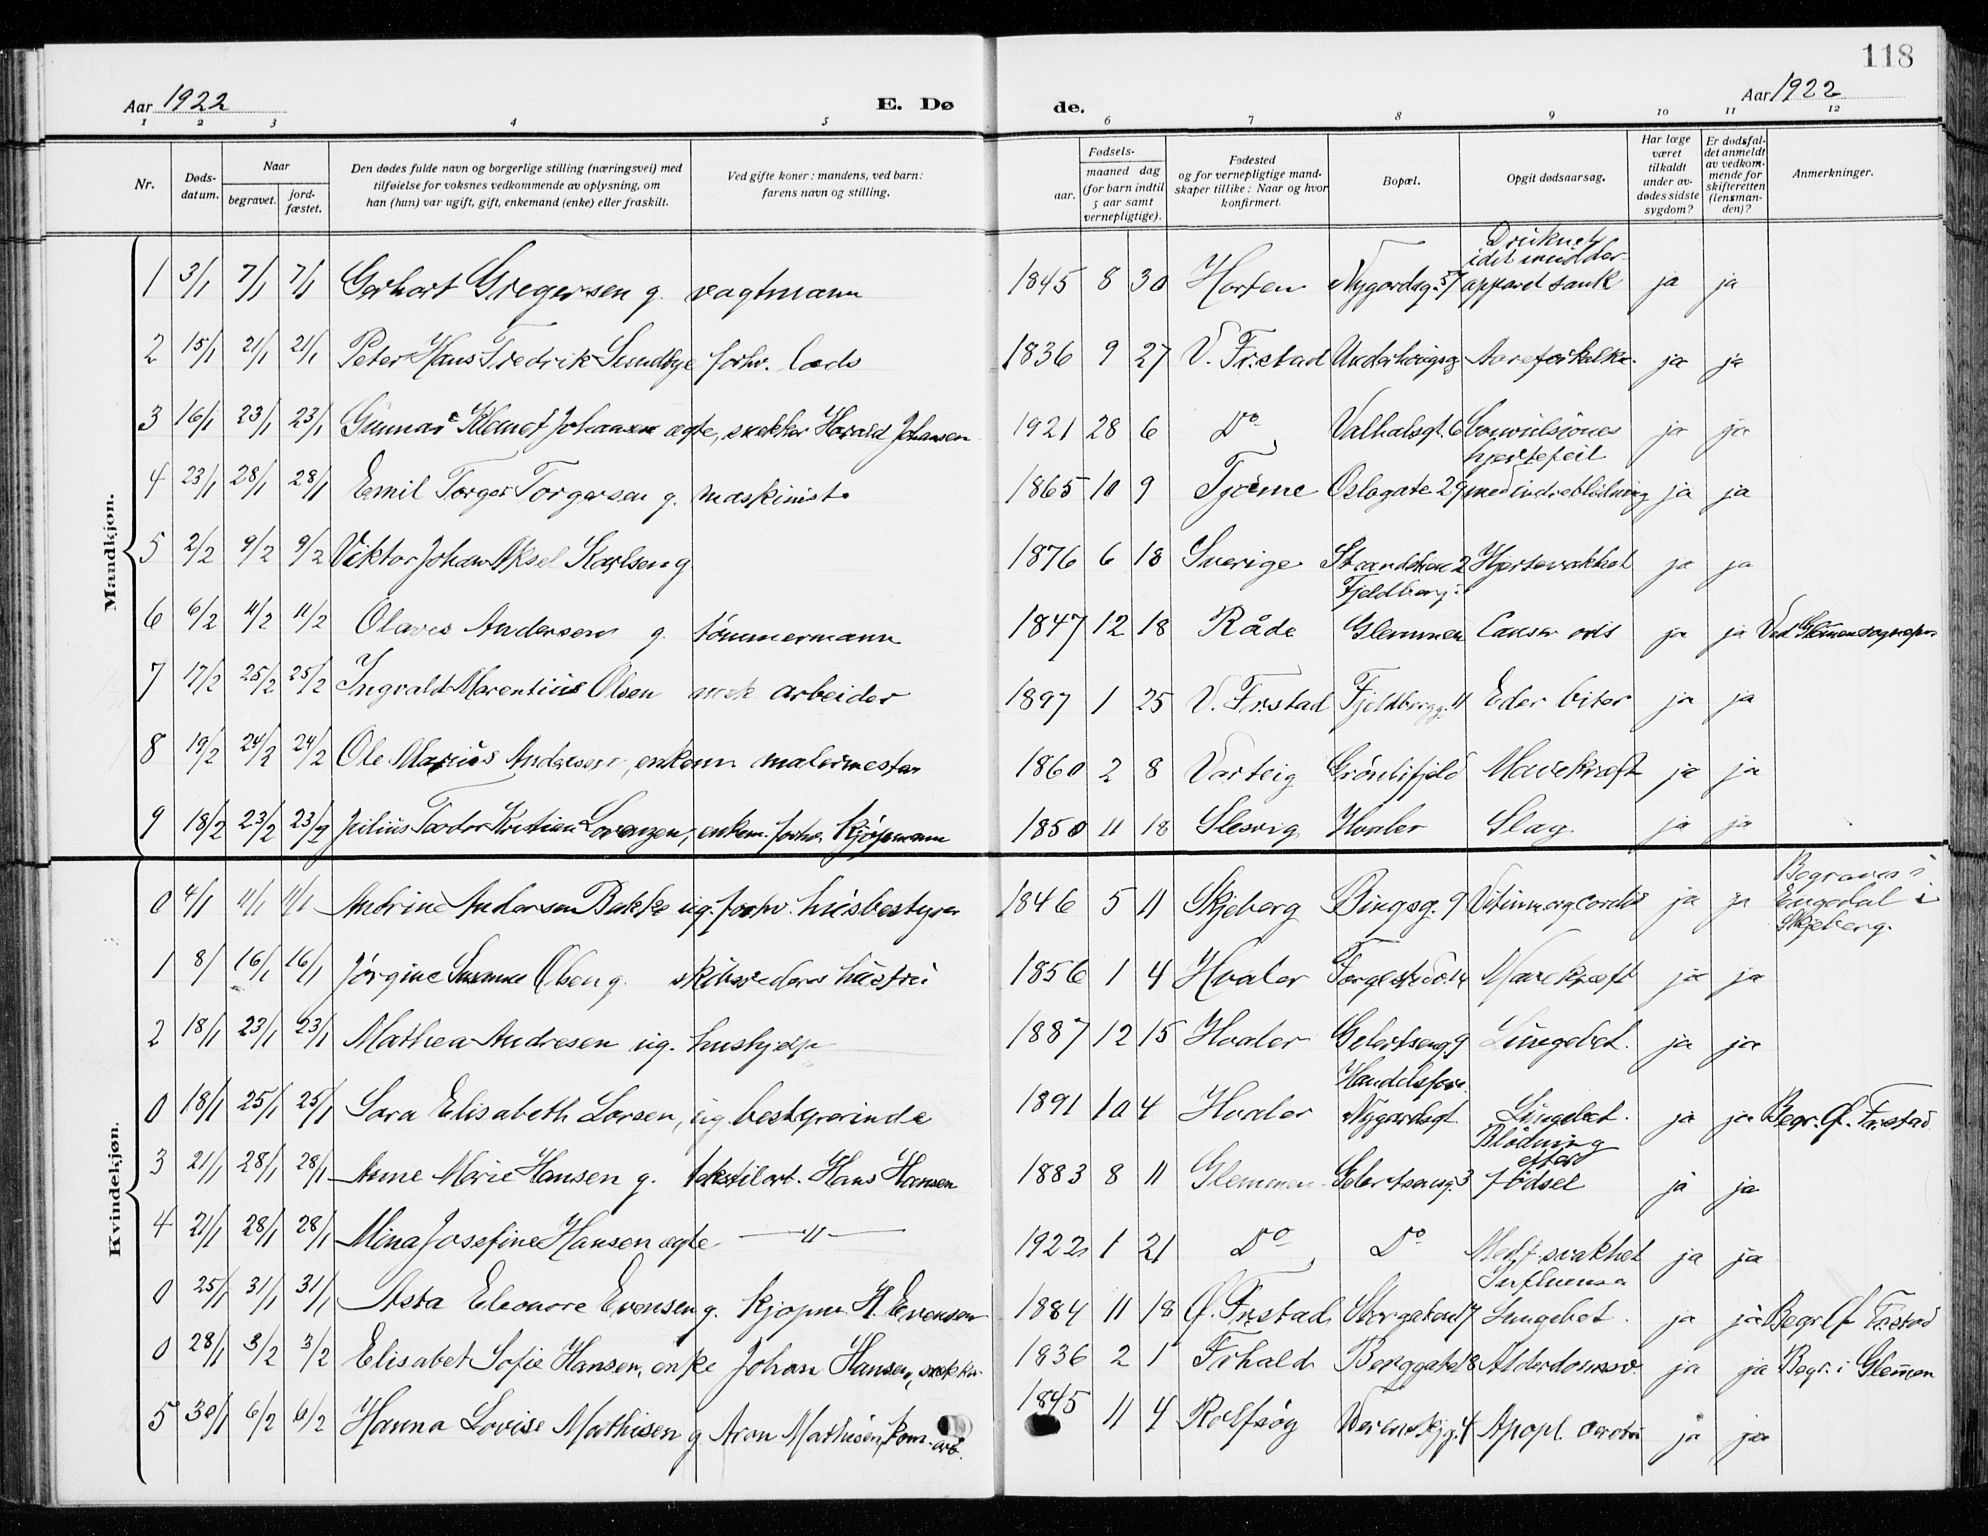 118
Aar 1922 E. Dø de. Aar 1922
1 2 3 4 5 6 7 8 9 10 11 12
Nr. Døds-datum. Naar begravet. jord-fæstet. Den dødes fulde navn og borgerlige stilling (næringsvei) med tilføielse for voksnes vedkommende av oplysning, om han (hun) var ugift, gift, enkemand (enke) eller fraskilt. Ved gifte koner: mandens, ved barn: farens navn og stilling. Fødsels- aar. maaned dag (for barn indtil 5 aar samt vernepligtige). Fødested og for vernepligtige mand-skaper tillike: Naar og hvor konfirmert. Bopæl. Opgit dødsaarsag. Har læge været tilkaldt under av-dødes sidste sygdom? Er dødsfal-det anmeldt av vedkom-mende for skifteretten (lensman-den)? Anmerkninger.
Mandkjøn.
1 3/1 7/1 7/1 Gerhart Gregersen g. vagtmann 1845 8 30 Horten Nygardsg. 57 Druknet idet mudder-apparet sank ja ja
2 15/1 21/1 21/1 Peter Hans Fredrik Sundbye forhv. lods 1836 9 27 V. Fr.stad Aareforkalkn. ja ja
3 16/1 23/1 23/1 Gunnar Klemet Johansen ægte, snekker Harald Johansen 1921 28 6 Do Valhalsgt. 6 Convulsiones ja ja
4 23/1 28/1 28/1 Emil Torger Torgersen g. maskinist 1865 10 9 Tjöme Oslogate 29 hjertefeil med indre blödning ja ja
5 2/2 9/2 9/2 Viktor Johan Aksel Karlsen g 1876 6 18 Sverige 2 Hjertesvakhet ja ja
6 6/2 11/2 11/2 Olaves Andersen g. tömmermann 1847 12 18 Råde Fjeldberg: Glemmen Cancer ja ja Ved Glemmen sognepr
7 17/2 25/2 25/2 Ingvald Marentius Olsen mek arbeider 1897 1 25 V. Fr.stad Fjeldbergg. 11 ja ja
8 19/2 24/2 24/2 Ole Marius Andersen, enkem malermester 1860 2 8 Varteig Grönlifjeld Mavekræft ja ja
9 18/2 23/2 23/2 Julius Teodor Kristian Lorenzen, enkem. forhv. kjöpmann 1850 11 18 Slesvig Hvaler Slag ja ja
Kvindekjøn.
0 4/1 11/1 11/1 Andrine Andersen Bakke ug. forhv. husbestyrer 1846 5 11 Skjeberg Bingsg. 9 Vitium org. cordis ja ja Begraves i Engedal i Skjeberg.
1 8/ 16/1 16/1 Jörgine Susanne Olsen g. skibsreders hustru 1856 1 4 Hvaler 14 Mavekræft ja ja
2 18/1 23/1 23/1 Mathea Andresen ug. hushjelp 1887 12 15 Hvaler Gelertseng. 9 Lungebet. ja ja
0 18/1 25/1 25/1 Sara Elisabeth Larsen, ug. bestyrerinde 1891 10 4 Hvaler Handelsfore. Nygardsgt Lungebet. ja ja Begr. Ø. Fr.stad
3 21/1 28/1 28/1 Anne Marie Hansen g. tekstilarb. Hans Hansen 1883 8 11 Glemmen Gelertseng. 3 Blödning efter födsel ja ja
4 21/1 28/1 28/1 Mina Josefine Hansen ægte —"— 1922 1 21 Do Do Medf. svakhet ja ja
0 25/1 31/1 31/1 Asta Eleonore Evensen g. kjøpm H. Evensen 1884 11 18 Ø. Fr.stad Storgaten 17 Influensa Lungebet. ja ja Begr. Ø Fr.stad
0 28/1 3/2 3/2 Elisabet Sofie Hansen, enke Johan Hansen, snekker 1836 2 1 Fr.hald Berggaten 8 Alderdomssv. ja ja Begr. i Glemmen
5 30/1 6/2 6/2 Hanna Lovise Mathisen g Aron Mathisen, kom. arb. 1845 11 4 Rolfsøy 4 Apopl. cerebri ja ja